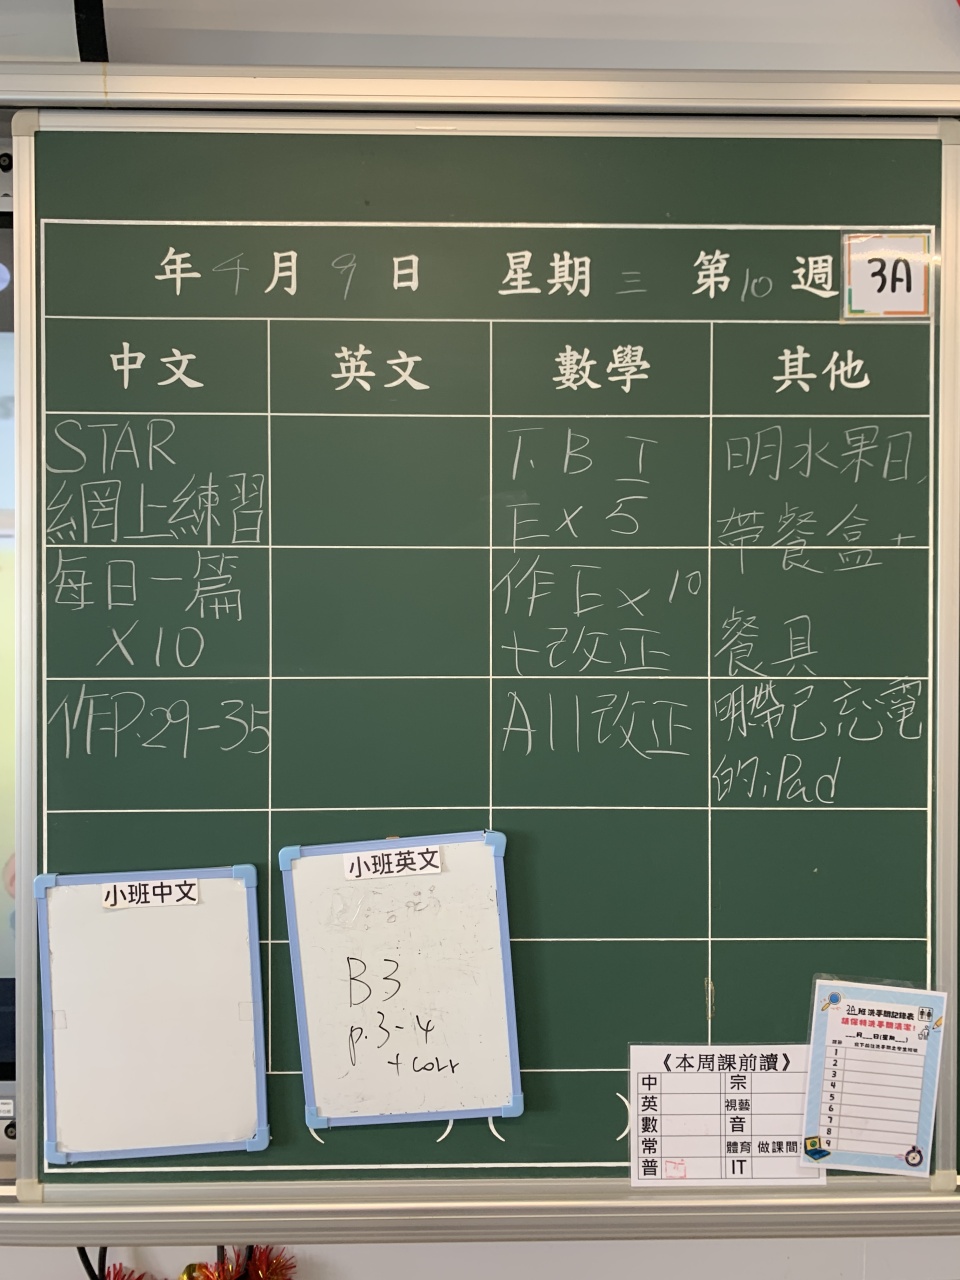 年 4 月 9 日 星期 三 第 10 週 3A
中文 英文 數學 其他
STAR
網上練習
每日一篇
X10
作P.29-35
T.B I
Ex 5
作Ex10
+改正
All改正
明水果日,
帶餐盒+
餐具
明帶已充電
的iPad
小班中文
小班英文
B3
p.3-4
+corr
( ) ( )
《本周課前讀》
中 宗
英 視藝
數 音
常 體育 做課間
普 IT
3A班洗手間記錄表
請保持洗手間清潔!
__月__日(星期__)
1
2
3
4
5
6
7
8
9